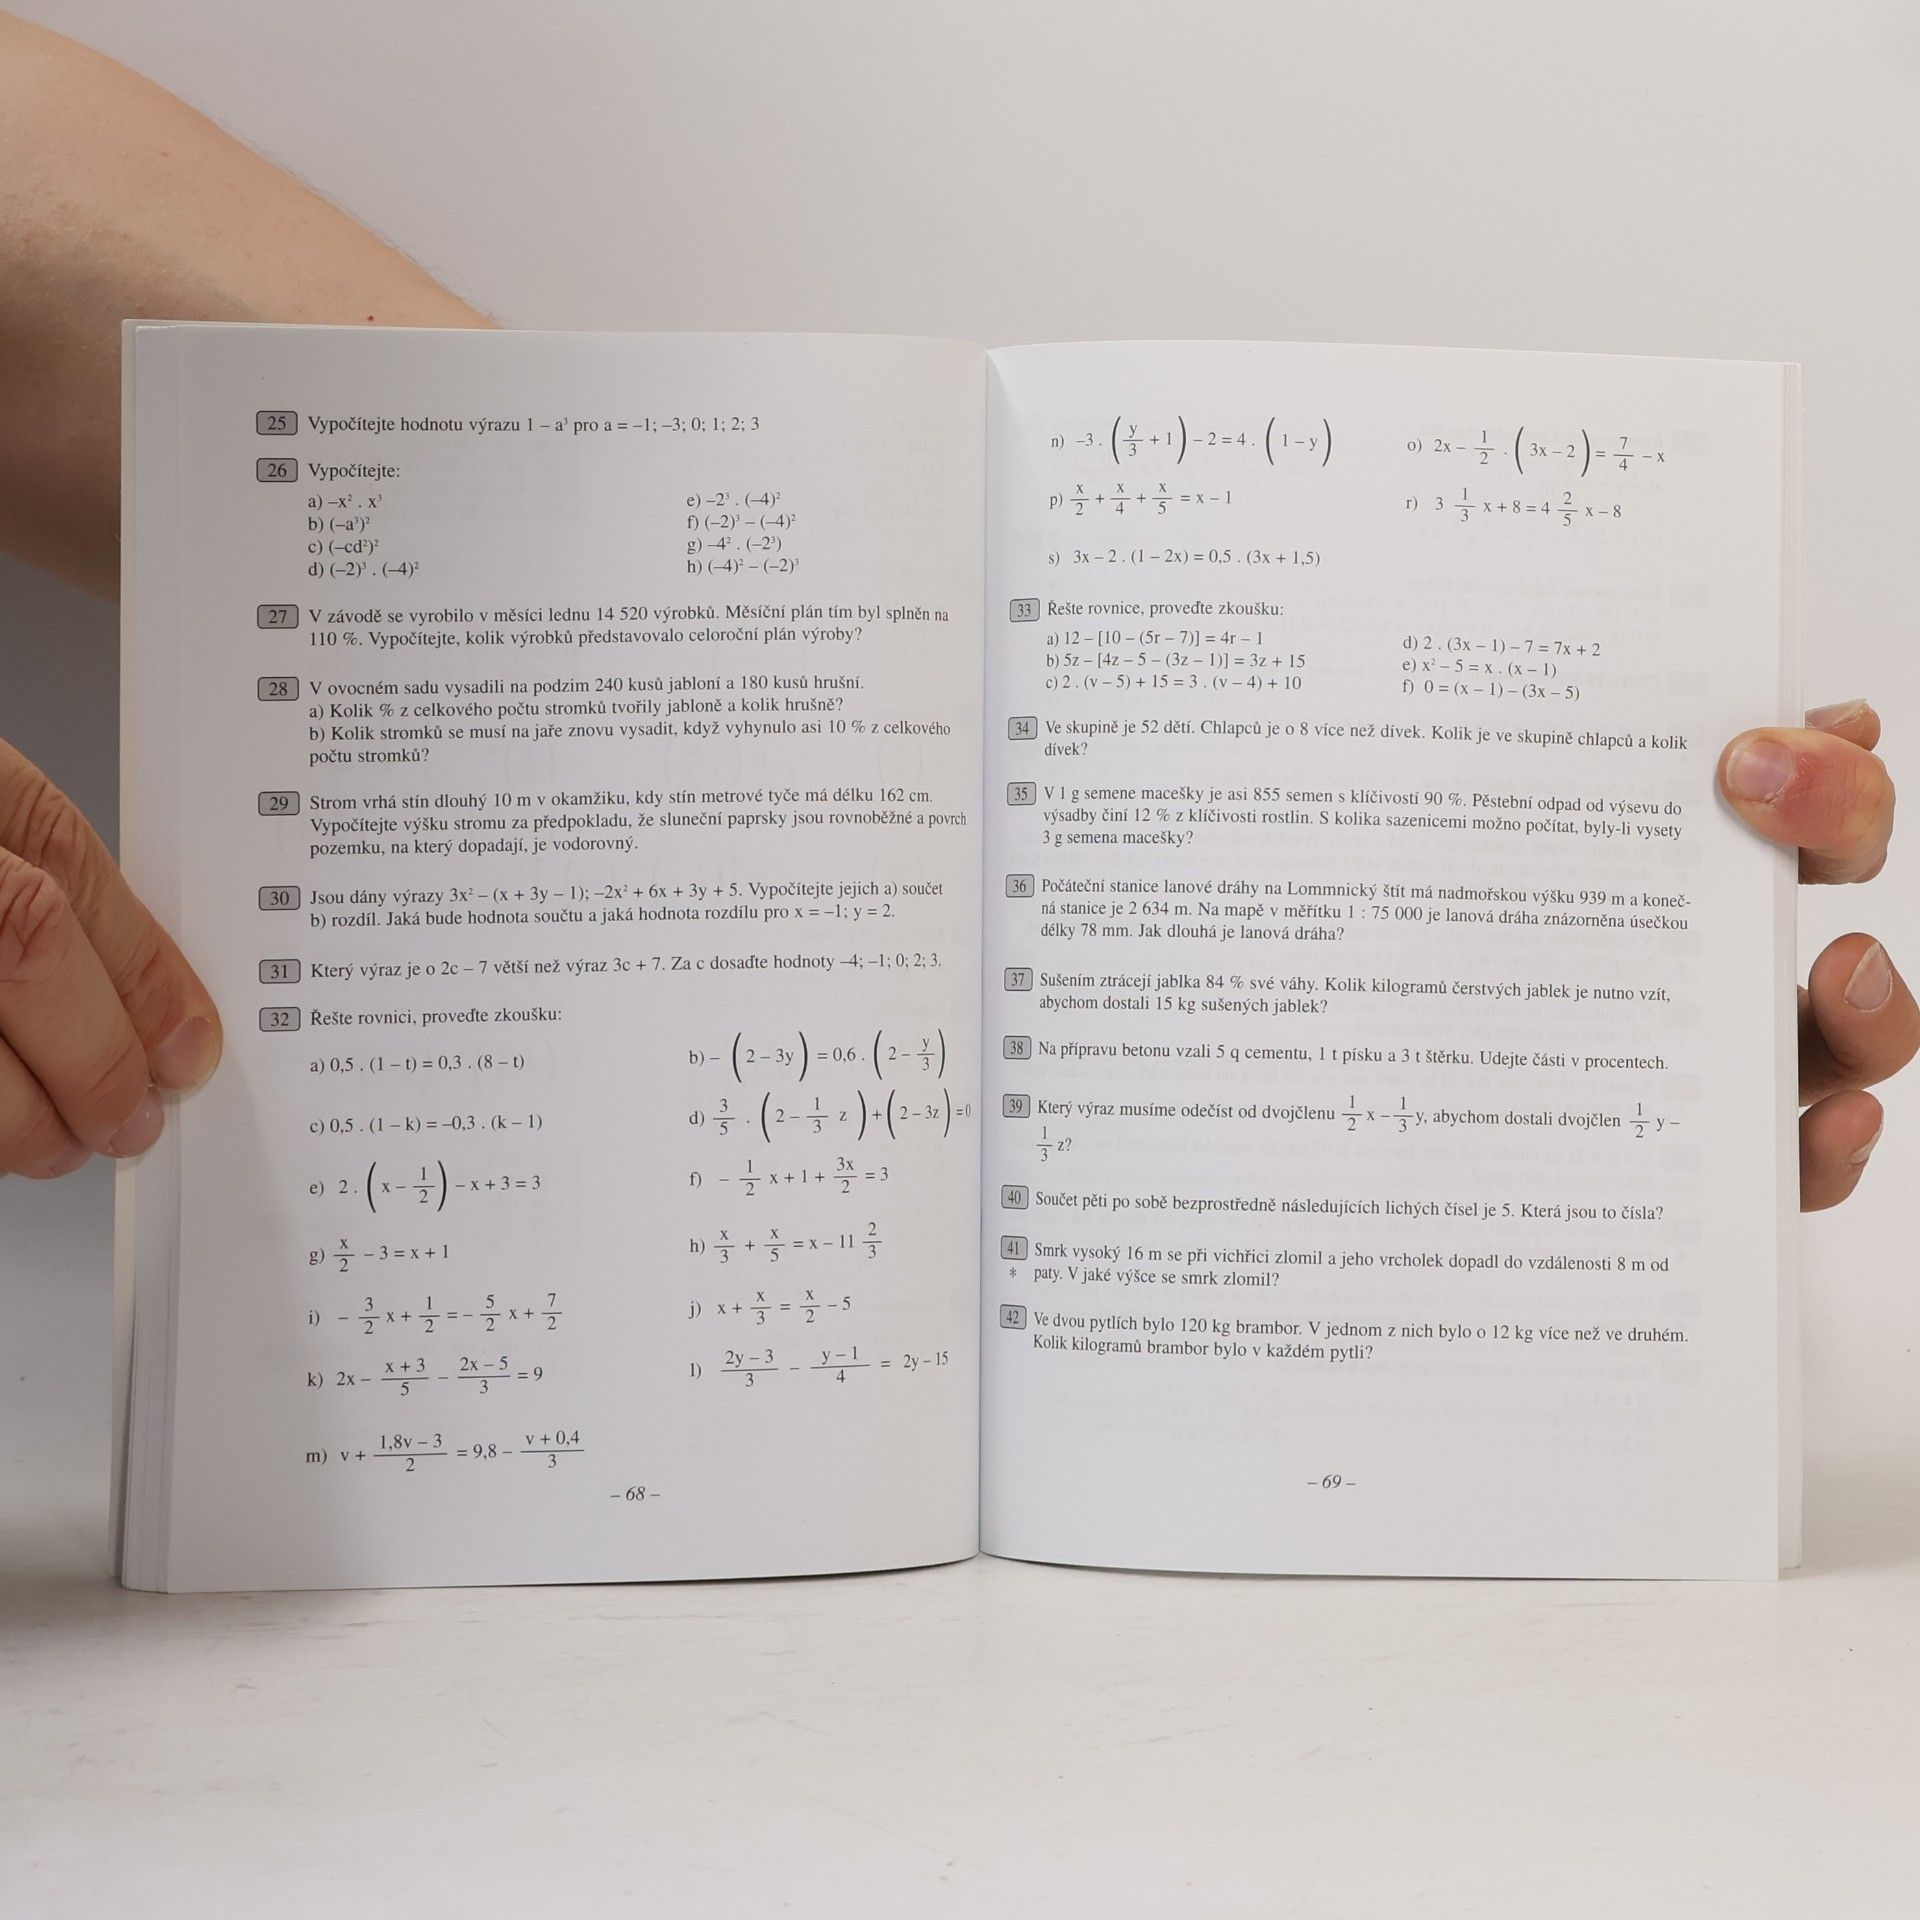 25 Vypočítejte hodnotu výrazu 1 – a³ pro a = –1; –3; 0; 1; 2; 3
26 Vypočítejte:
a) –x² . x³
b) (–a³)²
c) (–cd²)²
d) (–2)³ . (–4)²
e) –2³ . (–4)²
f) (–2)³ – (–4)²
g) –4² . (–2³)
h) (–4)² – (–2)³
27 V závodě se vyrobilo v měsíci lednu 14 520 výrobků. Měsíční plán tím byl splněn na
110 %. Vypočítejte, kolik výrobků představovalo celoroční plán výroby?
28 V ovocném sadu vysadili na podzim 240 kusů jabloní a 180 kusů hrušní.
a) Kolik % z celkového počtu stromků tvořily jabloně a kolik hrušně?
b) Kolik stromků se musí na jaře znovu vysadit, když vyhynulo asi 10 % z celkového
počtu stromků?
29 Strom vrhá stín dlouhý 10 m v okamžiku, kdy stín metrové tyče má délku 162 cm.
Vypočítejte výšku stromu za předpokladu, že sluneční paprsky jsou rovnoběžné a povrch
pozemku, na který dopadají, je vodorovný.
30 Jsou dány výrazy 3x² – (x + 3y – 1); –2x² + 6x + 3y + 5. Vypočítejte jejich a) součet
b) rozdíl. Jaká bude hodnota součtu a jaká hodnota rozdílu pro x = –1; y = 2.
31 Který výraz je o 2c – 7 větší než výraz 3c + 7. Za c dosaďte hodnoty –4; –1; 0; 2; 3.
32 Řešte rovnici, proveďte zkoušku:
a) 0,5 . (1 – t) = 0,3 . (8 – t)
b) – (2 – 3y) = 0,6 . (2 – y/3)
c) 0,5 . (1 – k) = –0,3 . (k – 1)
d) 3/5 . (2 – 1/3 z) + (2 – 3z) = 0
e) 2 . (x – 1/2) – x + 3 = 3
f) – 1/2 x + 1 + 3x/2 = 3
g) x/2 – 3 = x + 1
h) x/3 + x/5 = x – 11 2/3
i) – 3/2 x + 1/2 = – 5/2 x + 7/2
j) x + x/3 = x/2 – 5
k) 2x – (x + 3)/5 – (2x – 5)/3 = 9
l) (2y – 3)/3 – (y – 1)/4 = 2y – 15
m) v + (1,8v – 3)/2 = 9,8 – (v + 0,4)/3
– 68 –
n) –3 . (y/3 + 1) – 2 = 4 . (1 – y)
o) 2x – 1/2 . (3x – 2) = 7/4 – x
p) x/2 + x/4 + x/5 = x – 1
r) 3 1/3 x + 8 = 4 2/5 x – 8
s) 3x – 2 . (1 – 2x) = 0,5 . (3x + 1,5)
33 Řešte rovnice, proveďte zkoušku:
a) 12 – [10 – (5r – 7)] = 4r – 1
b) 5z – [4z – 5 – (3z – 1)] = 3z + 15
c) 2 . (v – 5) + 15 = 3 . (v – 4) + 10
d) 2 . (3x – 1) – 7 = 7x + 2
e) x² – 5 = x . (x – 1)
f) 0 = (x – 1) – (3x – 5)
34 Ve skupině je 52 dětí. Chlapců je o 8 více než dívek. Kolik je ve skupině chlapců a kolik
dívek?
35 V 1 g semene macešky je asi 855 semen s klíčivostí 90 %. Pěstební odpad od výsevu do
výsadby činí 12 % z klíčivosti rostlin. S kolika sazenicemi možno počítat, byly-li vysety
3 g semena macešky?
36 Počáteční stanice lanové dráhy na Lommnický štít má nadmořskou výšku 939 m a koneč-
ná stanice je 2 634 m. Na mapě v měřítku 1 : 75 000 je lanová dráha znázorněna úsečkou
délky 78 mm. Jak dlouhá je lanová dráha?
37 Sušením ztrácejí jablka 84 % své váhy. Kolik kilogramů čerstvých jablek je nutno vzít,
abychom dostali 15 kg sušených jablek?
38 Na přípravu betonu vzali 5 q cementu, 1 t písku a 3 t štěrku. Udejte části v procentech.
39 Který výraz musíme odečíst od dvojčlenu 1/2 x – 1/3 y, abychom dostali dvojčlen 1/2 y –
1/3 z?
40 Součet pěti po sobě bezprostředně následujících lichých čísel je 5. Která jsou to čísla?
41 Smrk vysoký 16 m se při vichřici zlomil a jeho vrcholek dopadl do vzdálenosti 8 m od
* paty. V jaké výšce se smrk zlomil?
42 Ve dvou pytlích bylo 120 kg brambor. V jednom z nich bylo o 12 kg více než ve druhém.
Kolik kilogramů brambor bylo v každém pytli?
– 69 –